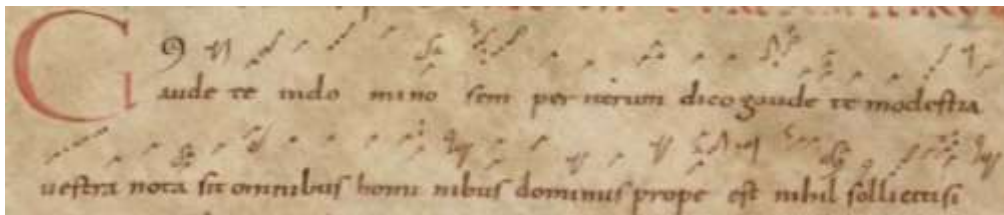 Gaude te indo mino sem per iterum dico gaude te modestia
uestra nota sit omnibus homi nibus dominus prope est nihil sollicitisi